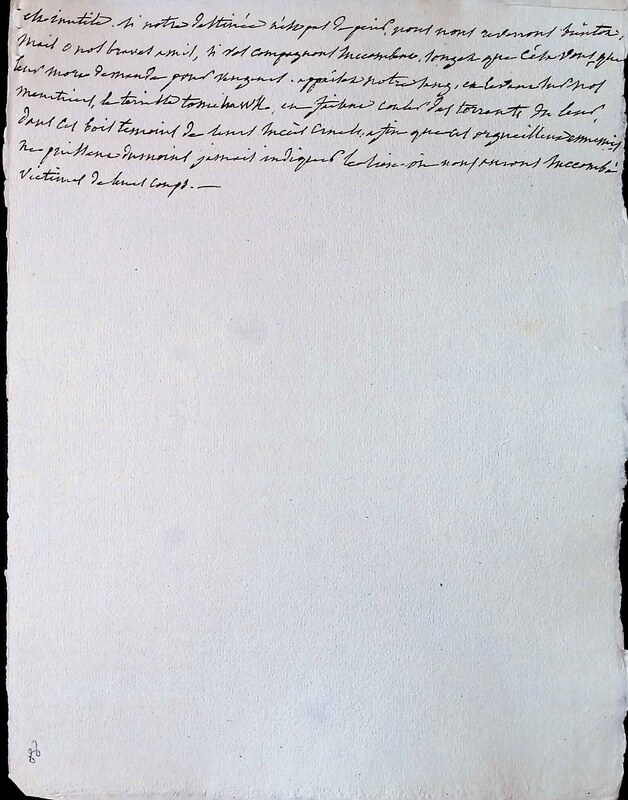 est inutile. si notre destinée n'est pas de perir, nous nous reverrons bientôt,
Mais o nos braves amis, si vos compagnons succombent, songez que c'est vous que
leur mort demande pour vengeurs. notre sang, en levant sur nos
meurtriers, le terrible tomehawk, en faisant couler des torrents du leur,
dans ces bois temoins de leurs succès cruels, afin que ces orgueilleux ennemis
ne puissent dumoins jamais indiquer le lieu où nous aurons succombé
victimes de leurs coups. —